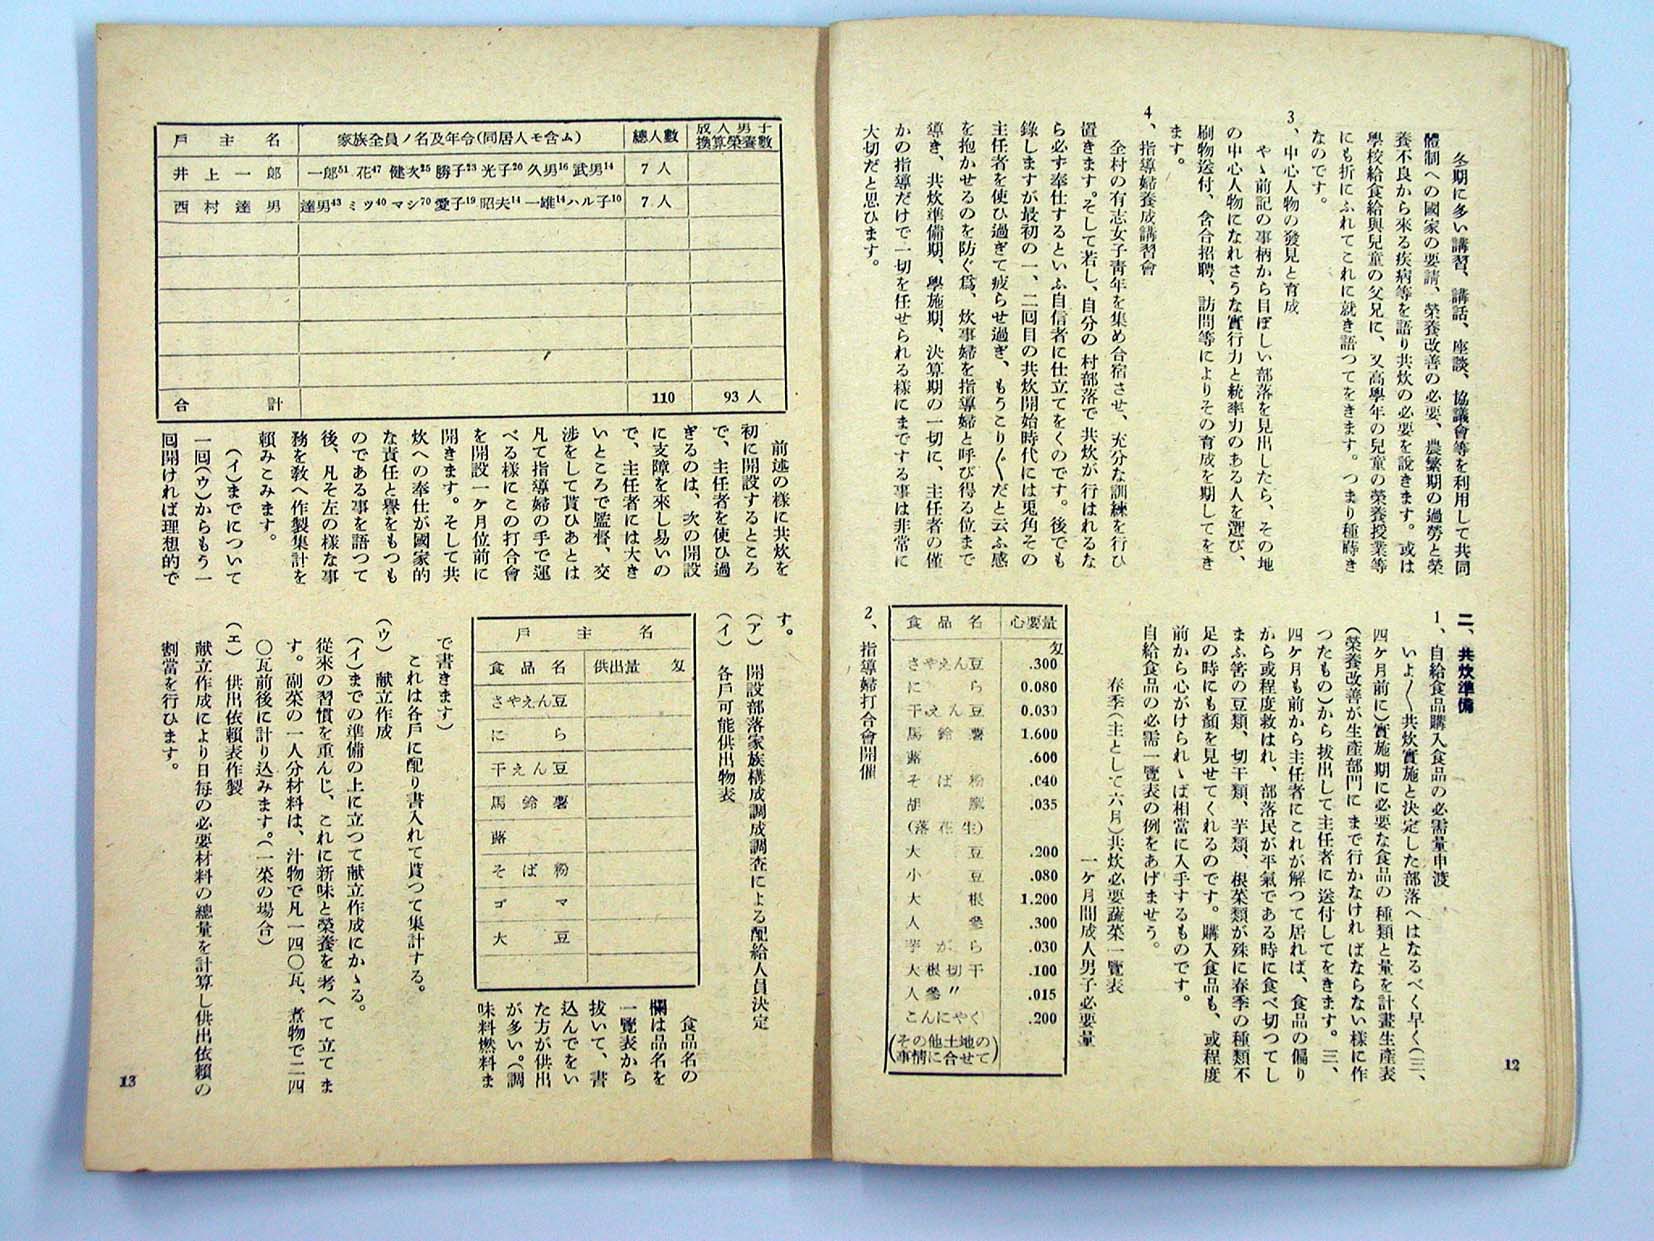 冬期に多い講習、講話、座談、協議會等を利用して共同
體制への國家の要請、榮養改善の必要、農繁期の過勞と榮
養不良から來る疾病等を語り共炊の必要を說きます。或は
學校給食給與兒童の父兄に、又高學年の兒童の榮養授業等
にも折にふれてこれに就き語つてをきます。つまり種蒔き
なのです。
3、中心人物の發見と育成
やゝ前記の事柄から目ぼしい部落を見出したら、その地
の中心人物になれさうな實行力と統率力のある人を選び、
刷物送付、會合招聘、訪問等によりその育成を期してをき
ます。
4、指導婦養成講習會
全村の有志女子靑年を集め合宿させ、充分な訓練を行ひ
置きます。そして若し、自分の村部落で共炊が行はれるな
ら必ず奉仕するといふ自信者に仕立てをくのです。後でも
錄しますが最初の一、二回目の共炊開始時代には兎角その
主任者を使ひ過ぎて疲らせ過ぎ、もうこり〳〵だと云ふ感
を抱かせるのを防ぐ爲、炊事婦を指導婦と呼び得る位まで
導き、共炊準備期、擧施期、決算期の一切に、主任者の僅
かの指導だけで一切を任せられる樣にまでする事は非常に
大切だと思ひます。
二、共炊準備
1、自給食品購入食品の必需量申渡
いよ〳〵共炊實施と決定した部落へはなるべく早く(三、
四ケ月前に)實施期に必要な食品の種類と量を計畫生產表
(榮養改善が生產部門にまで行かなければならない樣に作
つたもの)から拔出して主任者に送付してをきます。三、
四ケ月も前から主任者にこれが解つて居れば、食品の偏り
から或程度救はれ、部落民が平氣である時に食べ切つてし
まふ筈の豆類、切干類、芋類、根菜類が殊に春季の種類不
足の時にも顏を見せてくれるのです。購入食品も、或程度
前から心がけられゝば相當に入手するものです。
自給食品の必需一覽表の例をあげませう。
春季(主として六月)共炊必要蔬菜一覽表
一ケ月間成人男子必要量
食品名 心要量
匁
さやえん豆 .300
にら 0.080
干えん豆 0.030
馬鈴薯 1.600
蕗 .600
そば粉 .040
胡麻 .035
(落花生)
大豆 .200
小豆 .080
大根 1.200
人參 .300
芋がら .030
大根切干 .100
人參〃 .015
こんにやく .200
(その他土地の
事情に合せて)
2、指導婦打合會開催
12
戶主名 家族全員ノ名及年令(同居人モ含ム) 總人數 成人男子換算榮養數
井上一郎 一郎51 花47 健次25 勝子23 光子20 久男16 武男14 7人
西村達男 達男43 ミツ40 マシ70 愛子19 昭夫14 一雄14 ハル子10 7人
合計 110 93人
前述の樣に共炊を
初に開設するところ
で、主任者を使ひ過
ぎるのは、次の開設
に支障を來し易いの
で、主任者には大き
いところで監督、交
涉をして貰ひあとは
凡て指導婦の手で運
べる樣にこの打合會
を開設一ケ月位前に
開きます。そして共
炊への奉仕が國家的
な責任と譽をもつも
のである事を語つて
後、凡そ左の樣な事
務を敎へ作製集計を
賴みこみます。
(イ)までについて
一回(ウ)からもう一
回開ければ理想的で
す。
(ア) 開設部落家族構成調成調査による配給人員決定
(イ) 各戶可能供出物表
戶主名
食品名 供出量 匁
さやえん豆
にら
干えん豆
馬鈴薯
蕗
そば粉
ゴマ
大豆
食品名の
欄は品名を
一覽表から
拔いて、書
込んでをい
た方が供出
が多い。(調
味料燃料ま
で書きます)
これは各戶に配り書入れて貰つて集計する。
(ウ) 献立作成
(イ)までの準備の上に立つて献立作成にかゝる。
從來の習慣を重んじ、これに新味と榮養を考へて立てま
す。副菜の一人分材料は、汁物で凡一四〇瓦、煮物で二四
〇瓦前後に計り込みます。(一菜の場合)
(エ) 供出依賴表作製
献立作成により日每の必要材料の總量を計算し供出依賴の
割當を行ひます。
13